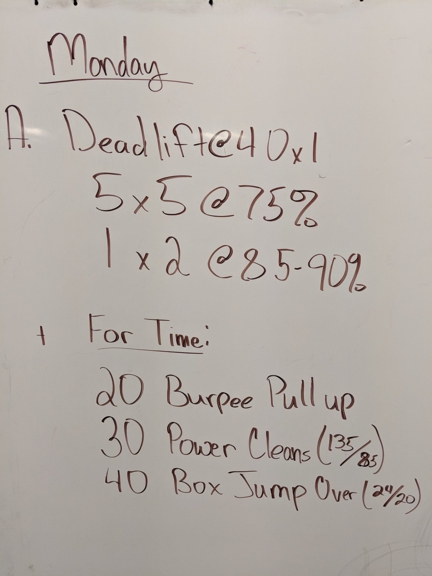 Monday
A. Deadlift @ 40x1
5 x 5 @ 75%
1 x 2 @ 85-90%
+ For Time:
20 Burpee Pull up
30 Power Cleans (135/85)
40 Box Jump Over (24/20)